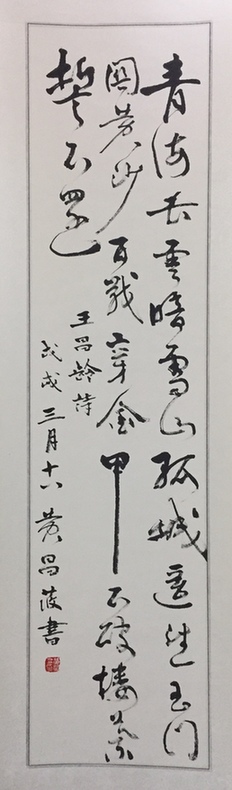 青海長雲暗雪山孤城遥望玉门
關黄沙百戰穿金甲不破樓蘭
誓不還
王昌齡詩
戊戌三月十六黄昌書